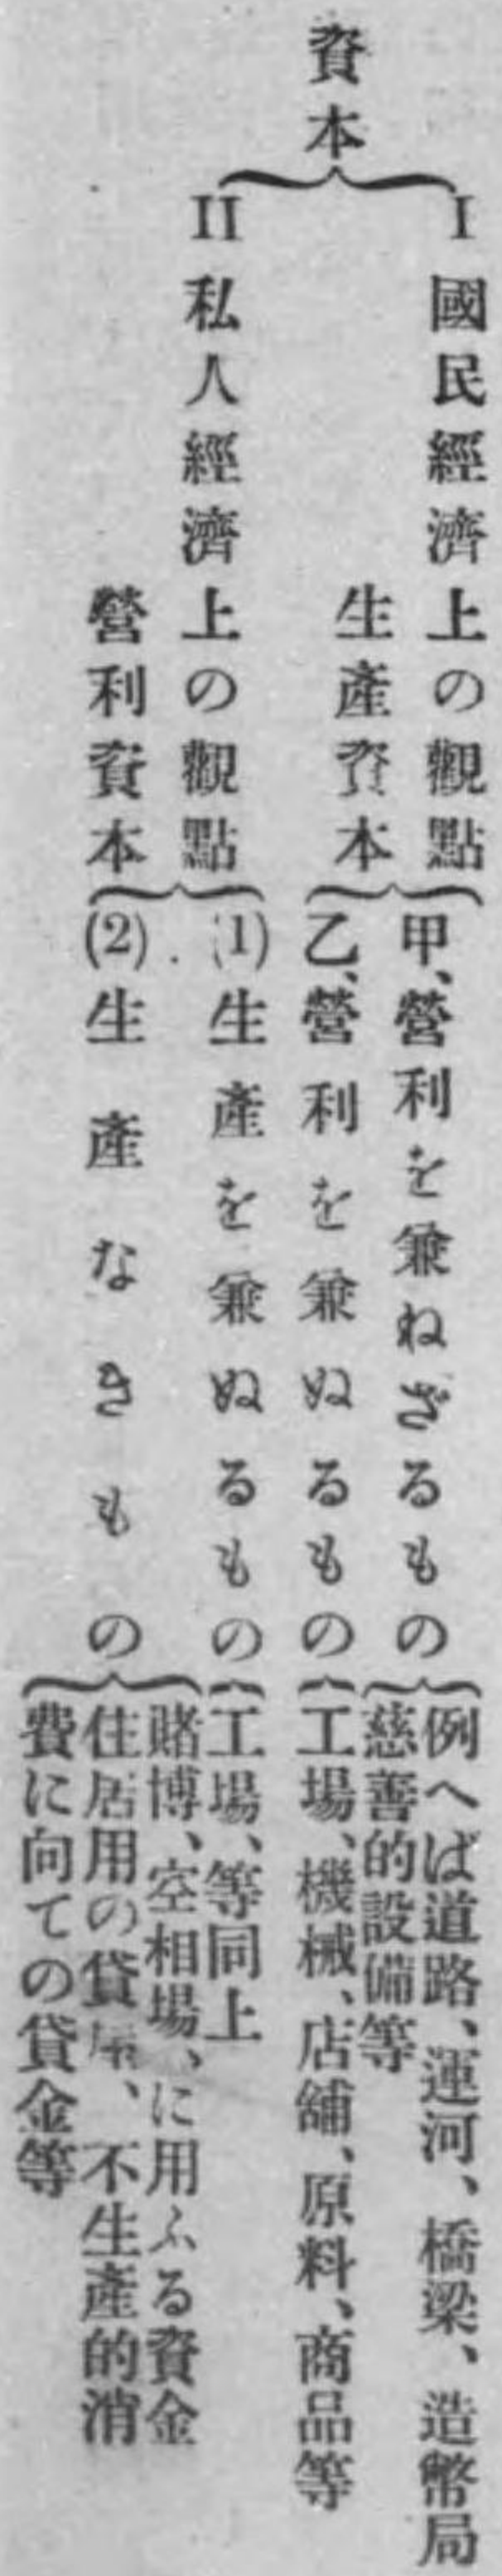 資本
I 國民經濟上の觀點
生產資本
甲、營利を兼ねざるもの
例へば道路、運河、橋梁、造幣局
慈善的設備等
乙、營利を兼ぬるもの
工場、機械、店舖、原料、商品等
II 私人經濟上の觀點
營利資本
(1) 生產を兼ぬるもの
工場、等同上
(2) 生產なきもの
賭博、空相場、に用ふる資金
住居用の貸屋、不生產的消
費に向ての貸金等